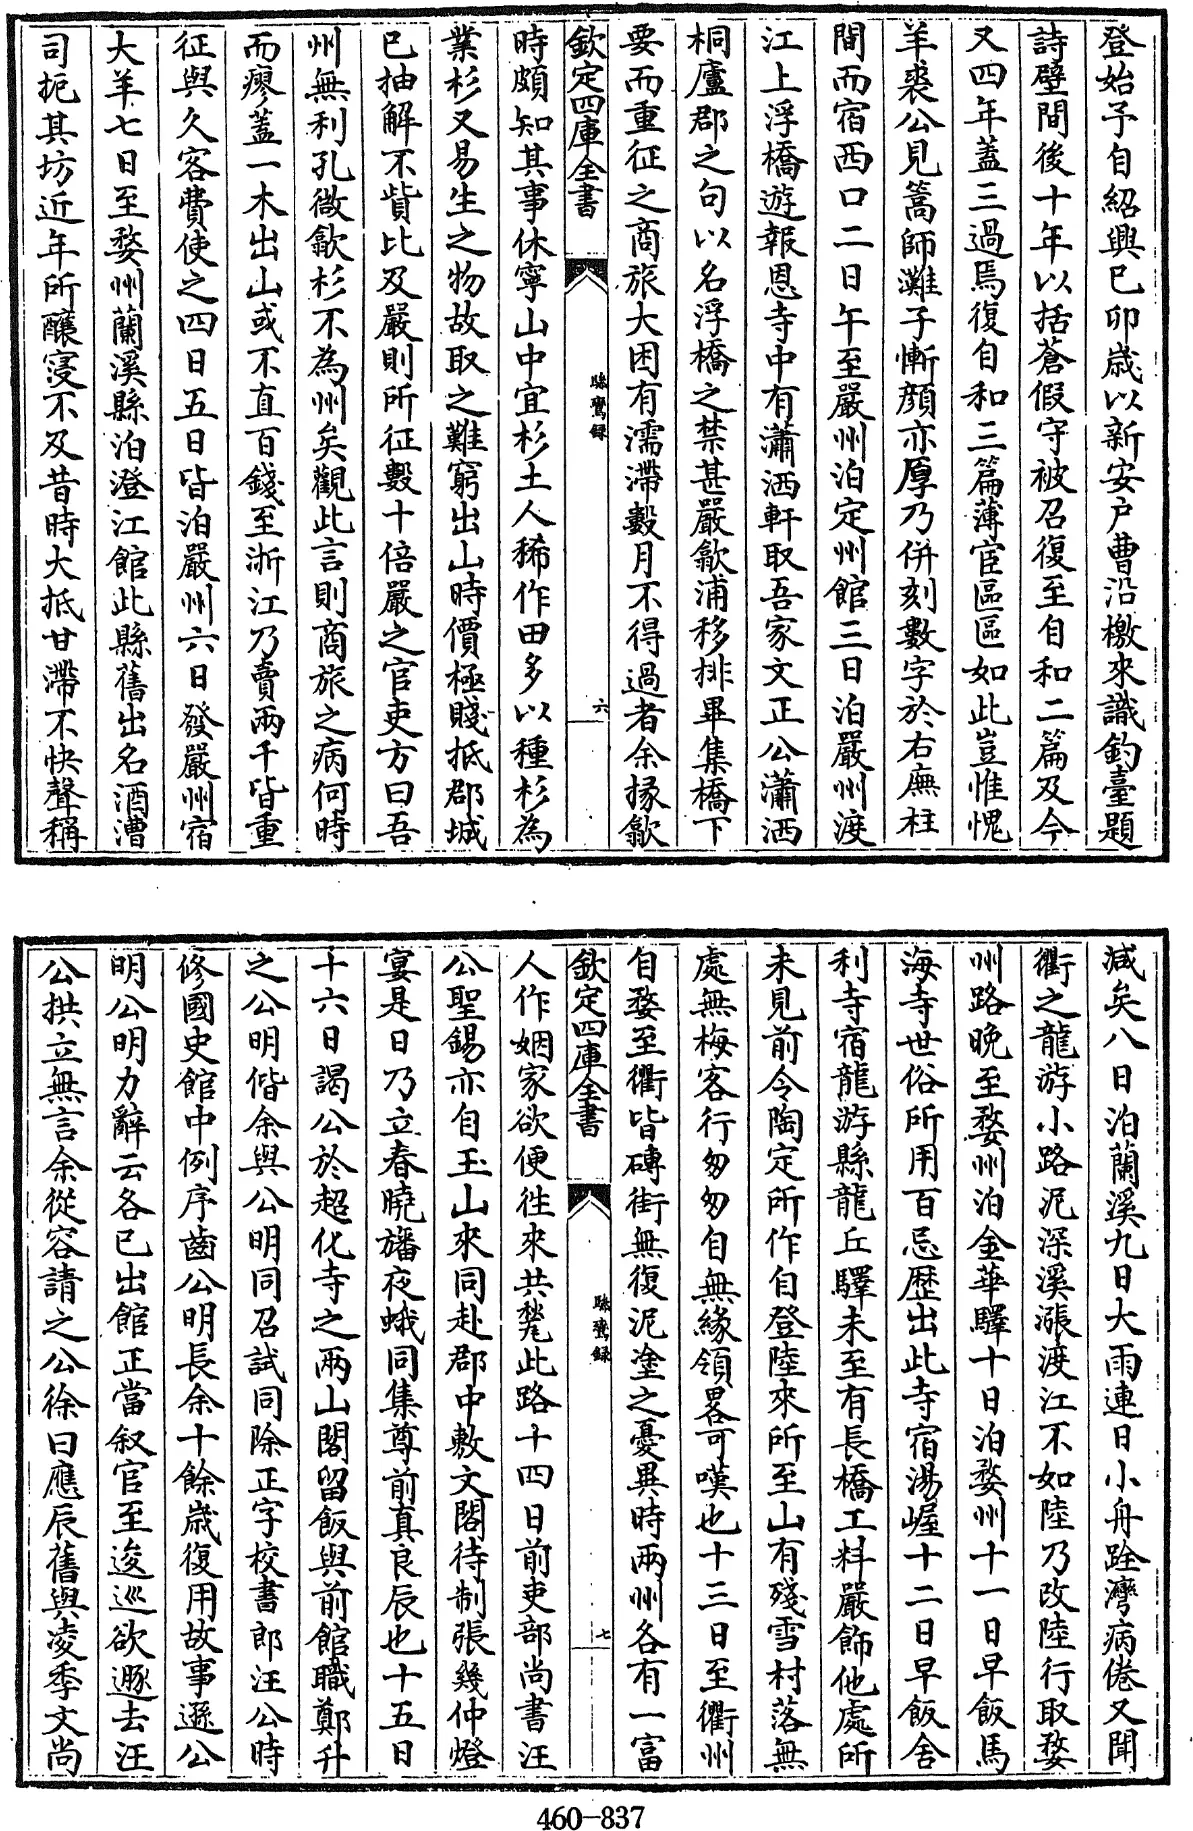 登始予自紹興己卯歲以新安户曹沿檄來識釣臺題
詩壁間後十年以括蒼假守被召復至自和二篇及今
又四年蓋三過焉復自和三篇薄宦區區如此豈惟愧
羊裘公見篙師灘子慚顔亦厚乃併刻數字於右廡柱
間而宿西口二日午至嚴州泊定州館三日泊嚴州渡
江上浮橋遊報恩寺中有瀟洒軒取吾家文正公瀟洒
桐廬郡之句以名浮橋之禁甚嚴歙浦移排畢集橋下
要而重征之商旅大困有濡滯數月不得過者余掾歙
欽定四庫全書
驂鸞録
六
時頗知其事休寧山中宜杉土人稀作田多以種杉為
業杉又易生之物故取之難窮出山時價極賤抵郡城
已抽解不貲比及嚴則所征數十倍嚴之官吏方曰吾
州無利孔微歙杉不為州矣觀此言則商旅之病何時
而瘳蓋一木出山或不直百錢至浙江乃賣兩千皆重
征與久客費使之四日五日皆泊嚴州六日發嚴州宿
大羊七日至婺州蘭溪縣泊澄江館此縣舊出名酒漕
司扼其坊近年所釀寖不及昔時大抵甘滯不快聲稱
減矣八日泊蘭溪九日大雨連日小舟跧灣病倦又聞
衢之龍游小路泥深溪漲渡江不如陸乃改陸行取婺
州路晚至婺州泊金華驛十日泊婺州十一日早飯馬
海寺世俗所用百忌歷出此寺宿湯崦十二日早飯舍
利寺宿龍游縣龍丘驛未至有長橋工料嚴飾他處所
未見前令陶定所作自登陸來所至山有殘雪村落無
處無梅客行匆匆自無緣領畧可嘆也十三日至衢州
自婺至衢皆磚街無復泥塗之憂異時兩州各有一富
欽定四庫全書
驂鸞録
七
人作姻家欲便往來共甃此路十四日前吏部尚書汪
公聖錫亦自玉山來同赴郡中敷文閣待制張幾仲燈
宴是日乃立春曉旛夜蛾同集尊前真良辰也十五日
十六日謁公於超化寺之兩山閣留飯與前館職鄭升
之公明偕余與公明同召試同除正字校書郎汪公時
修國史館中例序齒公明長余十餘歲復用故事遜公
明公明力辭云各已出館正當叙官至逡巡欲遯去汪
公拱立無言余從容請之公徐曰應辰舊與凌季文尚
460-837